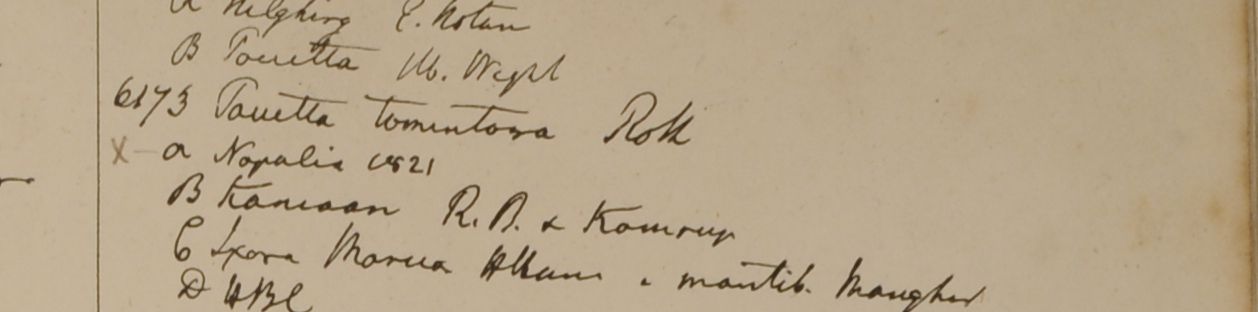 a Nilghiry E. Noton
B Pavetta W. Wight
6173 Pavetta tomentosa Roth
x a Napalia 1821
B Kamaon R. B. & Kamrup
C Ixora Herb. Ham. e montib. Monghir
D HBC